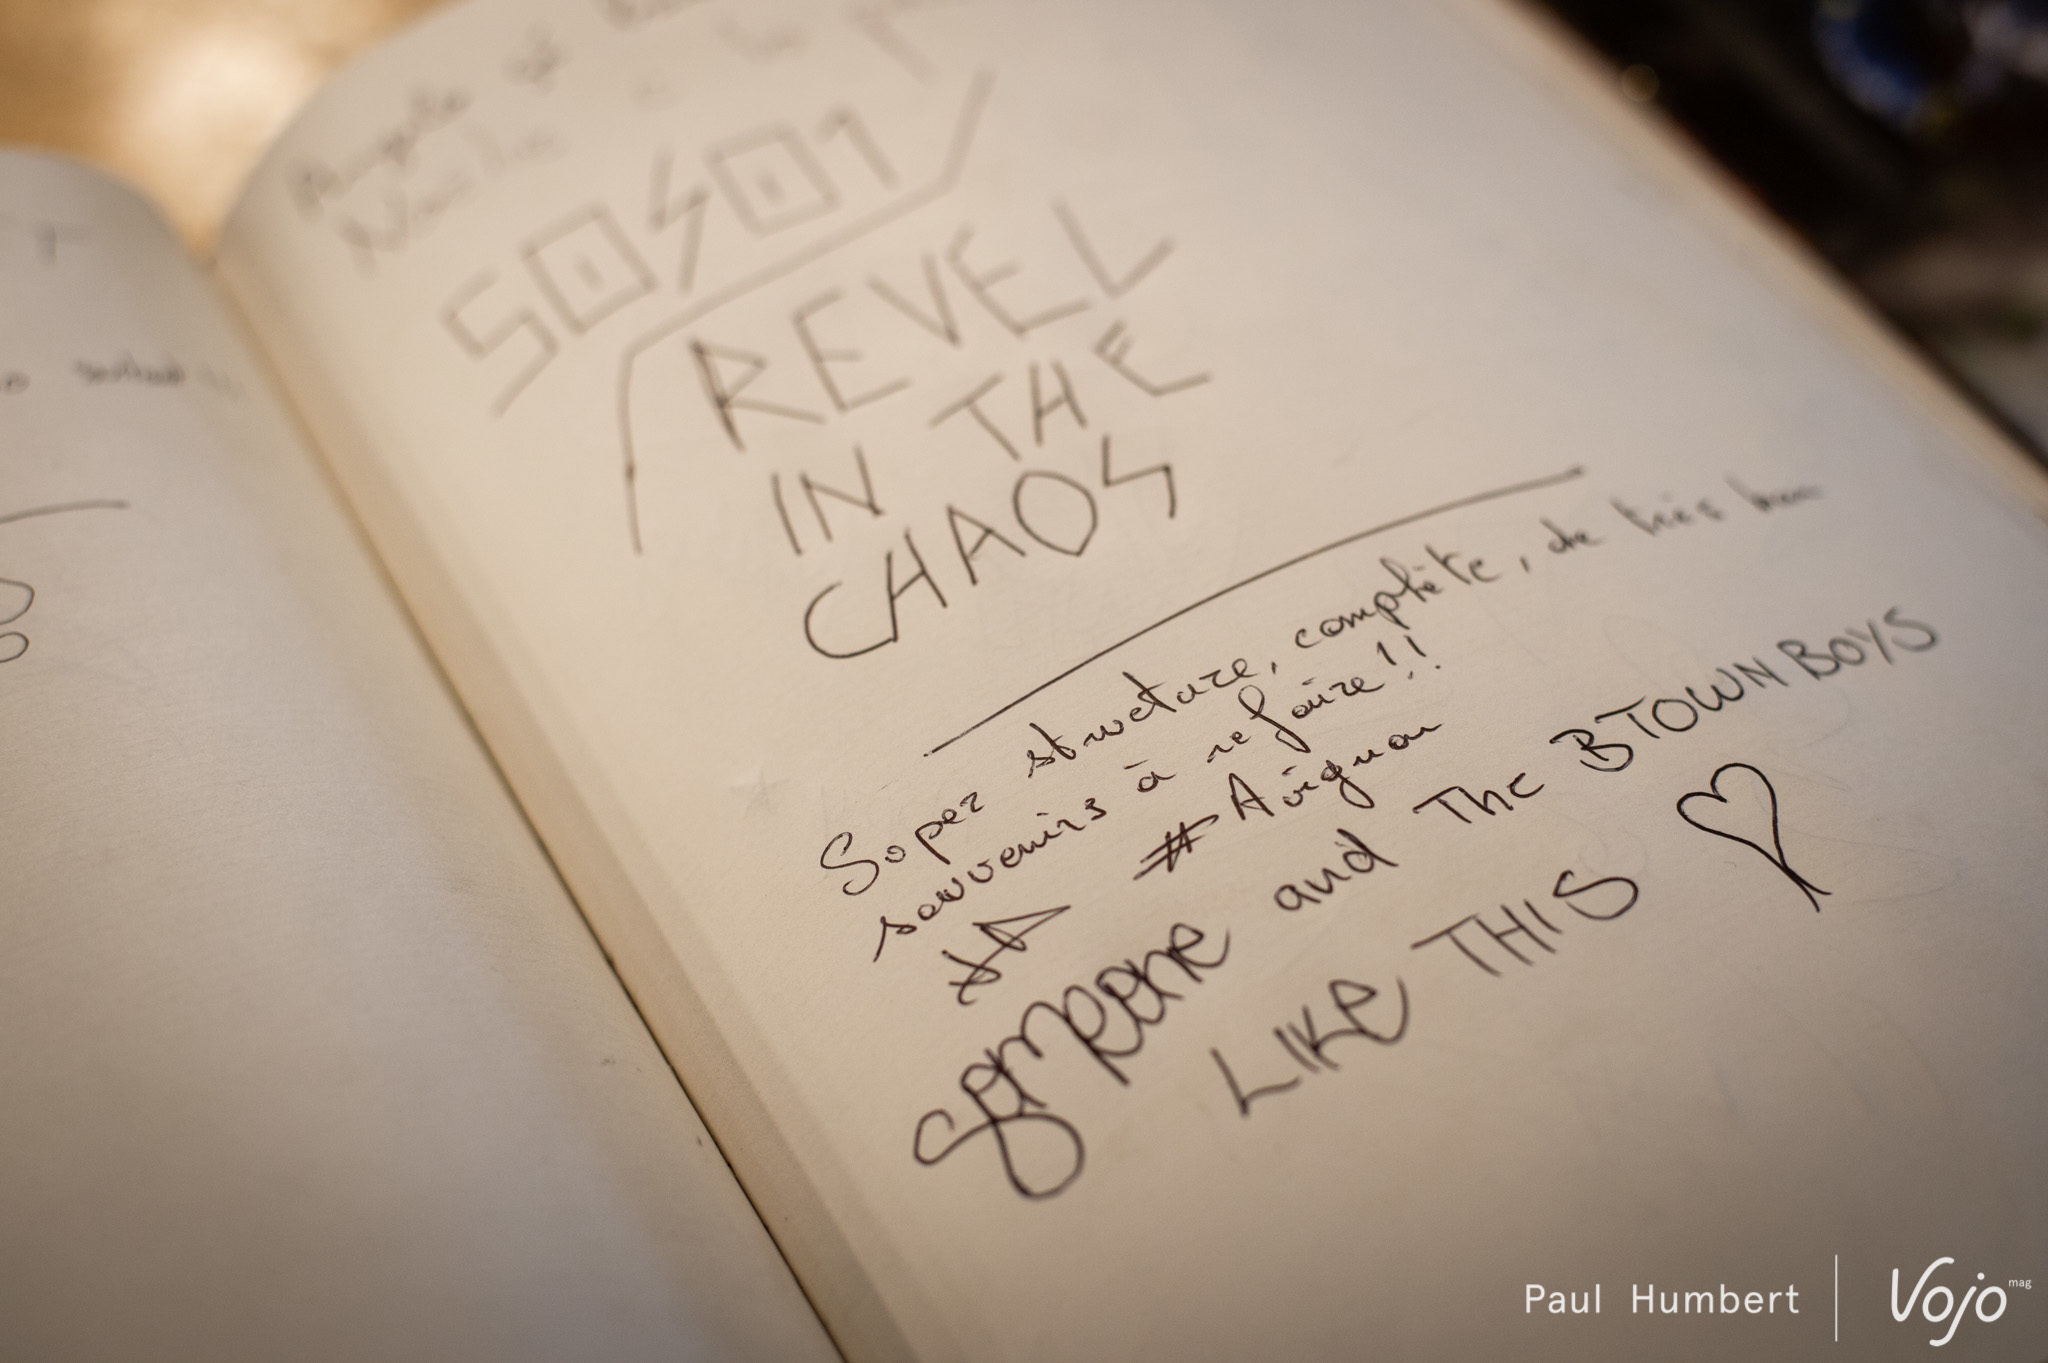 Angèle
SOSO1
REVEL
IN THE
CHAOS
Super structure, complète, de très bon
souvenirs à refaire!!
#Avignon
someone and The BTOWN BOYS
LIKE THIS
Paul Humbert
Vojo mag